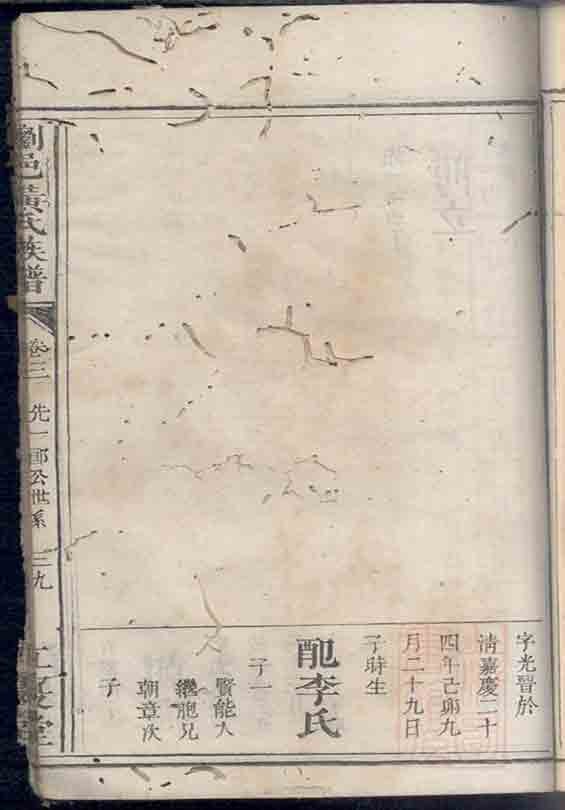 字光晉於
清嘉慶二十
四年己卯九
月二十九日
子時生
配李氏
子一
賢能入
繼胞兄
朝章次
子
劉邑黃氏族譜
卷三
先一郎公世系
三九